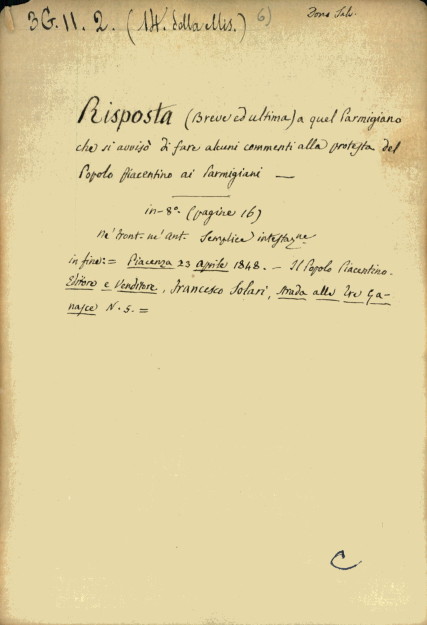 3G. II. 2. (14. della Mis.) 6)
Dono Salv.
Risposta (Breve ed ultima) a quel Parmigiano
che si avvisò di fare alcuni commenti alla protesta del
Popolo Piacentino ai Parmigiani —
in-8º. (pagine 16)
Ne' front. ne' ant. Semplice intestazne
in fine: = Piacenza 23 aprile 1848. - Il Popolo Piacentino.
Editore e Venditore, Francesco Solari, strada alle Tre Ga-
nasce N. 5. =
C